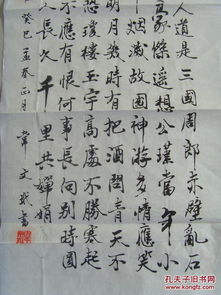 人道是三國周郎赤壁亂石
豪傑遙想公瑾當年小
烟滅故國神游多情應笑
明月幾時有把酒問青天不
恐瓊樓玉宇高處不勝寒起
不應有恨何事長向別時圓
人長久千里共嬋娟
癸巳孟春正月 韋文書